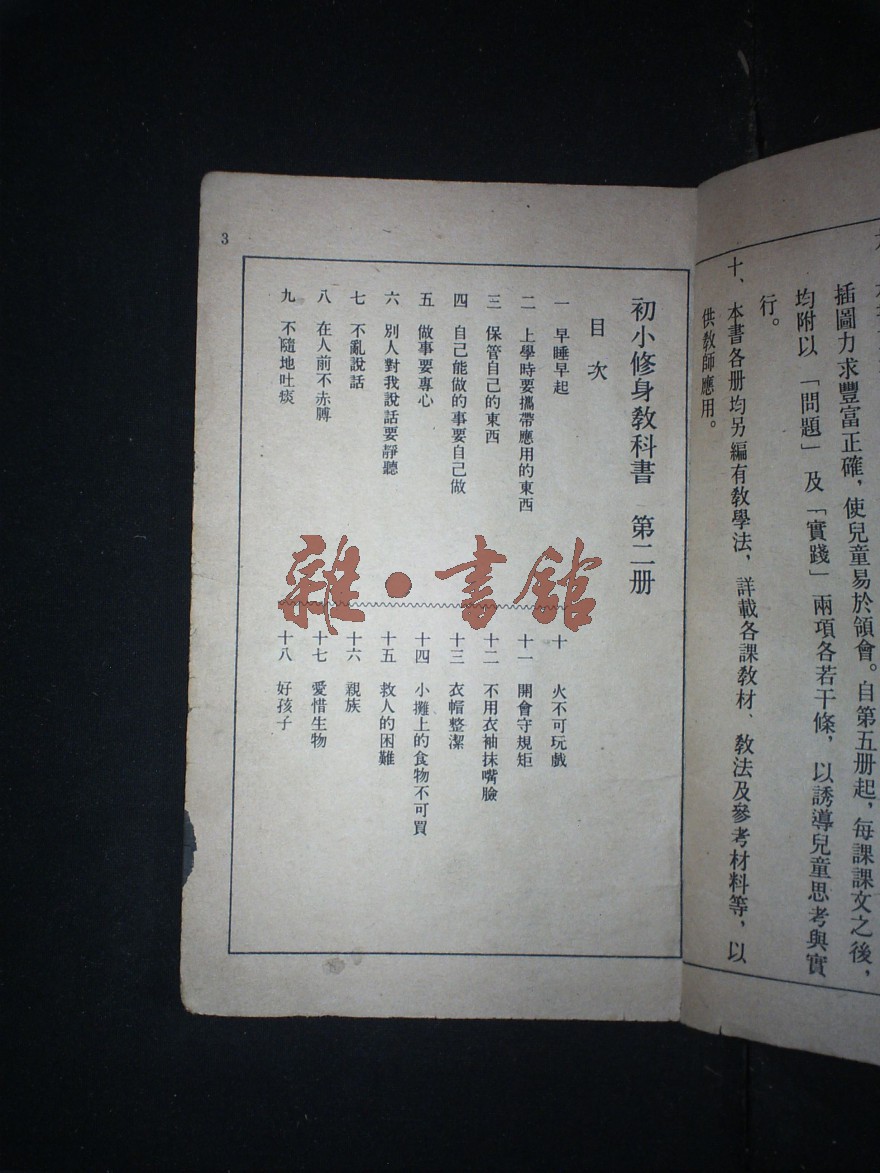 插圖力求豐富正確，使兒童易於領會。自第五册起，每課課文之後，
均附以「問題」及「實踐」兩項各若干條，以誘導兒童思考與實
行。
十、本書各册均另編有教學法，詳載各課教材、教法及參考材料等，以
供教師應用。
初小修身教科書　第二册
目次
一　早睡早起
二　上學時要攜帶應用的東西
三　保管自己的東西
四　自己能做的事要自己做
五　做事要專心
六　別人對我說話要靜聽
七　不亂說話
八　在人前不赤膊
九　不隨地吐痰
十　火不可玩戲
十一　開會守規矩
十二　不用衣袖抹嘴臉
十三　衣帽整潔
十四　小攤上的食物不可買
十五　救人的困難
十六　親族
十七　愛惜生物
十八　好孩子
3
雜·書館